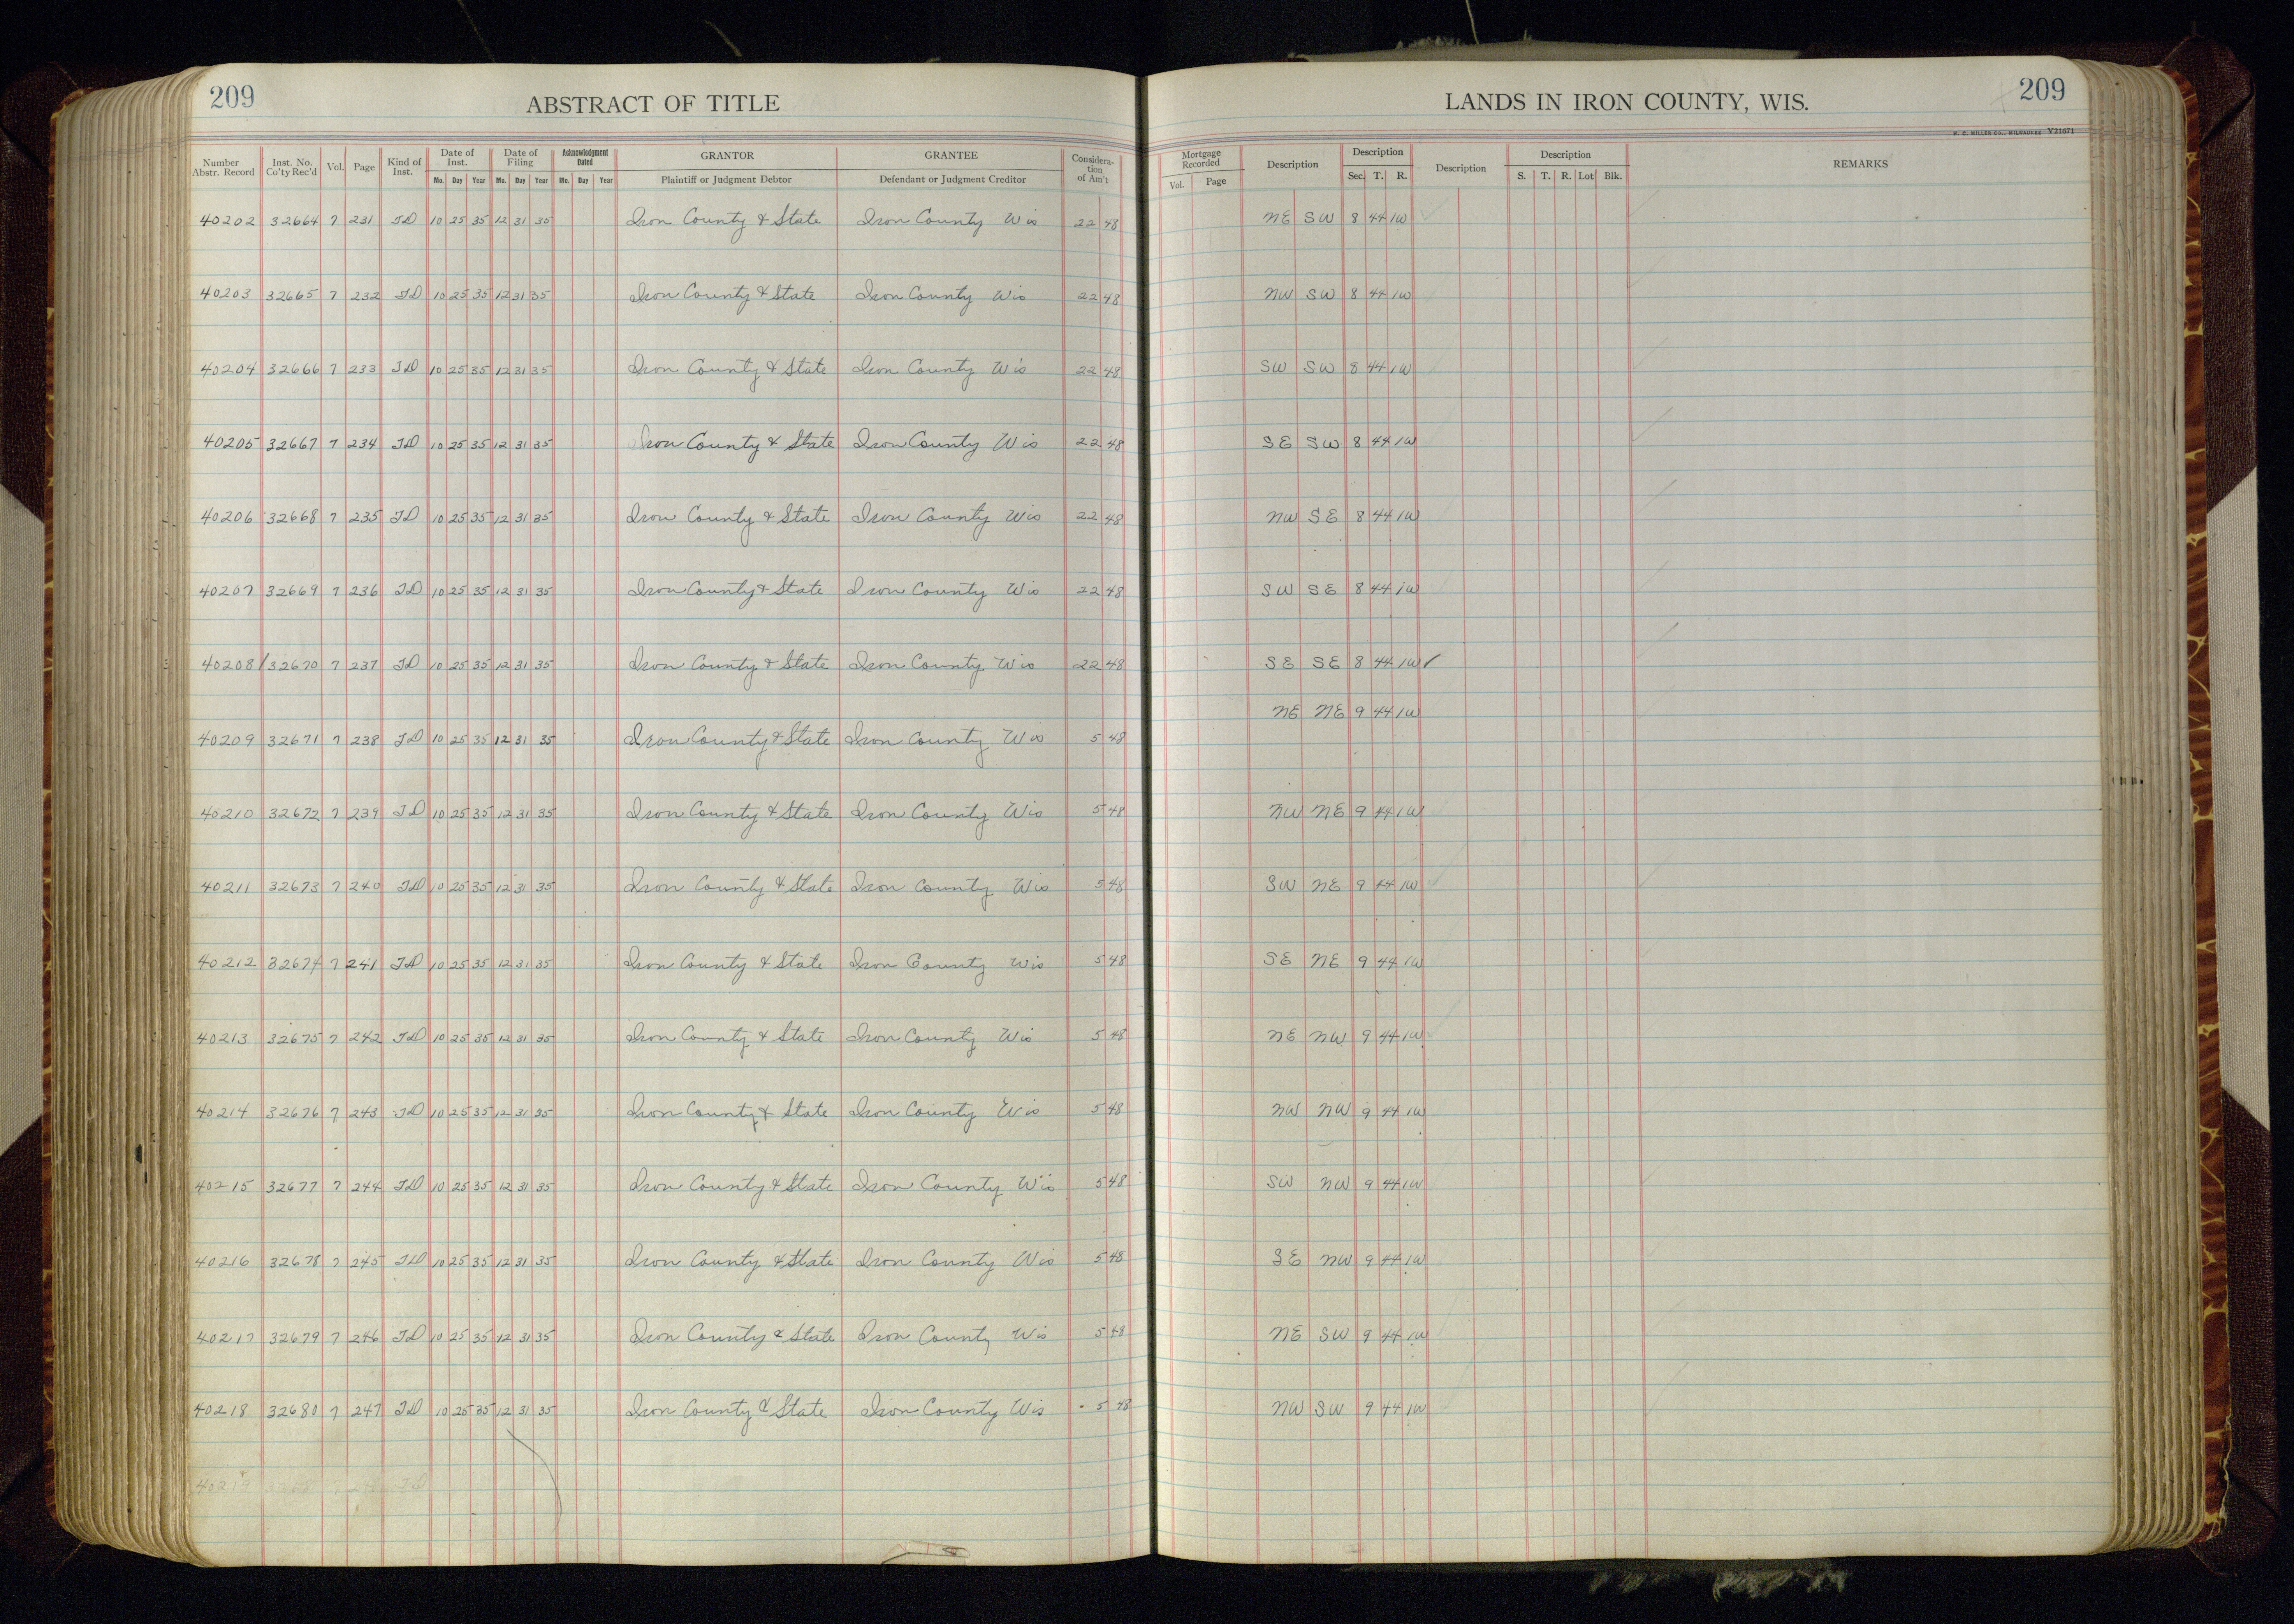 209 ABSTRACT OF TITLE LANDS IN IRON COUNTY, WIS. 209
H. C. MILLER CO., MILWAUKEE Y21671
Number Abstr. Record Inst. No. Co'ty Rec'd Vol. Page Kind of Inst. Date of Inst. Mo. Day Year Date of Filing Mo. Day Year Acknowledgment Dated Mo. Day Year GRANTOR Plaintiff or Judgment Debtor GRANTEE Defendant or Judgment Creditor Considera-tion of Am't Mortgage Recorded Vol. Page Description Description Sec. T. R. Description Description S. T. R. Lot Blk. REMARKS
40202 32664 7 231 TD 10 25 35 12 31 35 Iron County & State Iron County Wis 22 48 NE SW 8 44 1W
40203 32665 7 232 TD 10 25 35 12 31 35 Iron County & State Iron County Wis 22 48 NW SW 8 44 1W
40204 32666 7 233 TD 10 25 35 12 31 35 Iron County & State Iron County Wis 22 48 SW SW 8 44 1W
40205 32667 7 234 TD 10 25 35 12 31 35 Iron County & State Iron County Wis 22 48 SE SW 8 44 1W
40206 32668 7 235 TD 10 25 35 12 31 35 Iron County & State Iron County Wis 22 48 NW SE 8 44 1W
40207 32669 7 236 TD 10 25 35 12 31 35 Iron County & State Iron County Wis 22 48 SW SE 8 44 1W
40208 32670 7 237 TD 10 25 35 12 31 35 Iron County & State Iron County Wis 22 48 SE SE 8 44 1W ✓
NE NE 9 44 1W
40209 32671 7 238 TD 10 25 35 12 31 35 Iron County & State Iron County Wis 5 48
40210 32672 7 239 TD 10 25 35 12 31 35 Iron County & State Iron County Wis 5 48 NW NE 9 44 1W
40211 32673 7 240 TD 10 25 35 12 31 35 Iron County & State Iron County Wis 5 48 SW NE 9 44 1W
40212 32674 7 241 TD 10 25 35 12 31 35 Iron County & State Iron County Wis 5 48 SE NE 9 44 1W
40213 32675 7 242 TD 10 25 35 12 31 35 Iron County & State Iron County Wis 5 48 NE NW 9 44 1W
40214 32676 7 243 TD 10 25 35 12 31 35 Iron County & State Iron County Wis 5 48 NW NW 9 44 1W
40215 32677 7 244 TD 10 25 35 12 31 35 Iron County & State Iron County Wis 5 48 SW NW 9 44 1W
40216 32678 7 245 TD 10 25 35 12 31 35 Iron County & State Iron County Wis 5 48 SE NW 9 44 1W
40217 32679 7 246 TD 10 25 35 12 31 35 Iron County & State Iron County Wis 5 48 NE SW 9 44 1W
40218 32680 7 247 TD 10 25 35 12 31 35 Iron County & State Iron County Wis 5 48 NW SW 9 44 1W
40219 7 248 TD